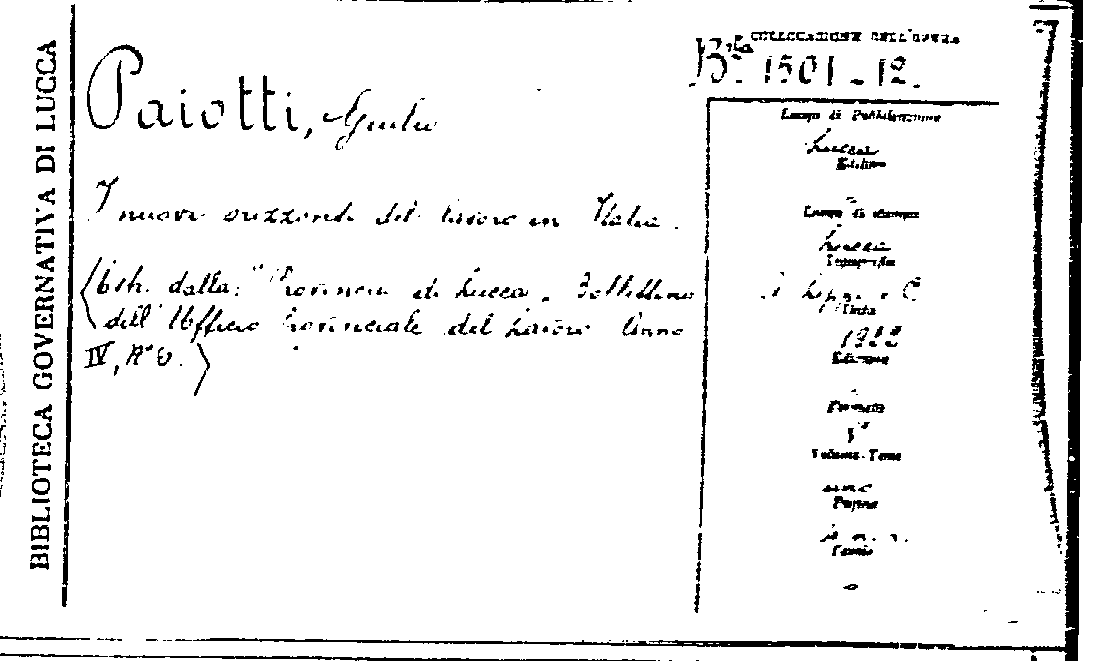 BIBLIOTECA GOVERNATIVA DI LUCCA
Paiotti, Giulio
I nuovi orizzonti del lavoro in Italia.
(Estr. dalla: "Provincia di Lucca. Bollettino
dell'Ufficio Provinciale del Lavoro Anno
IV, N° 6.)
COLLOCAZIONE DELL'OPERA
Bta 1501-12.
Luogo di Pubblicazione
Lucca
Editore
Luogo di stampa
Lucca
Tipografia
Data
1922
Edizione
Formato
8°
Volume-Tomo
uno
Pagine